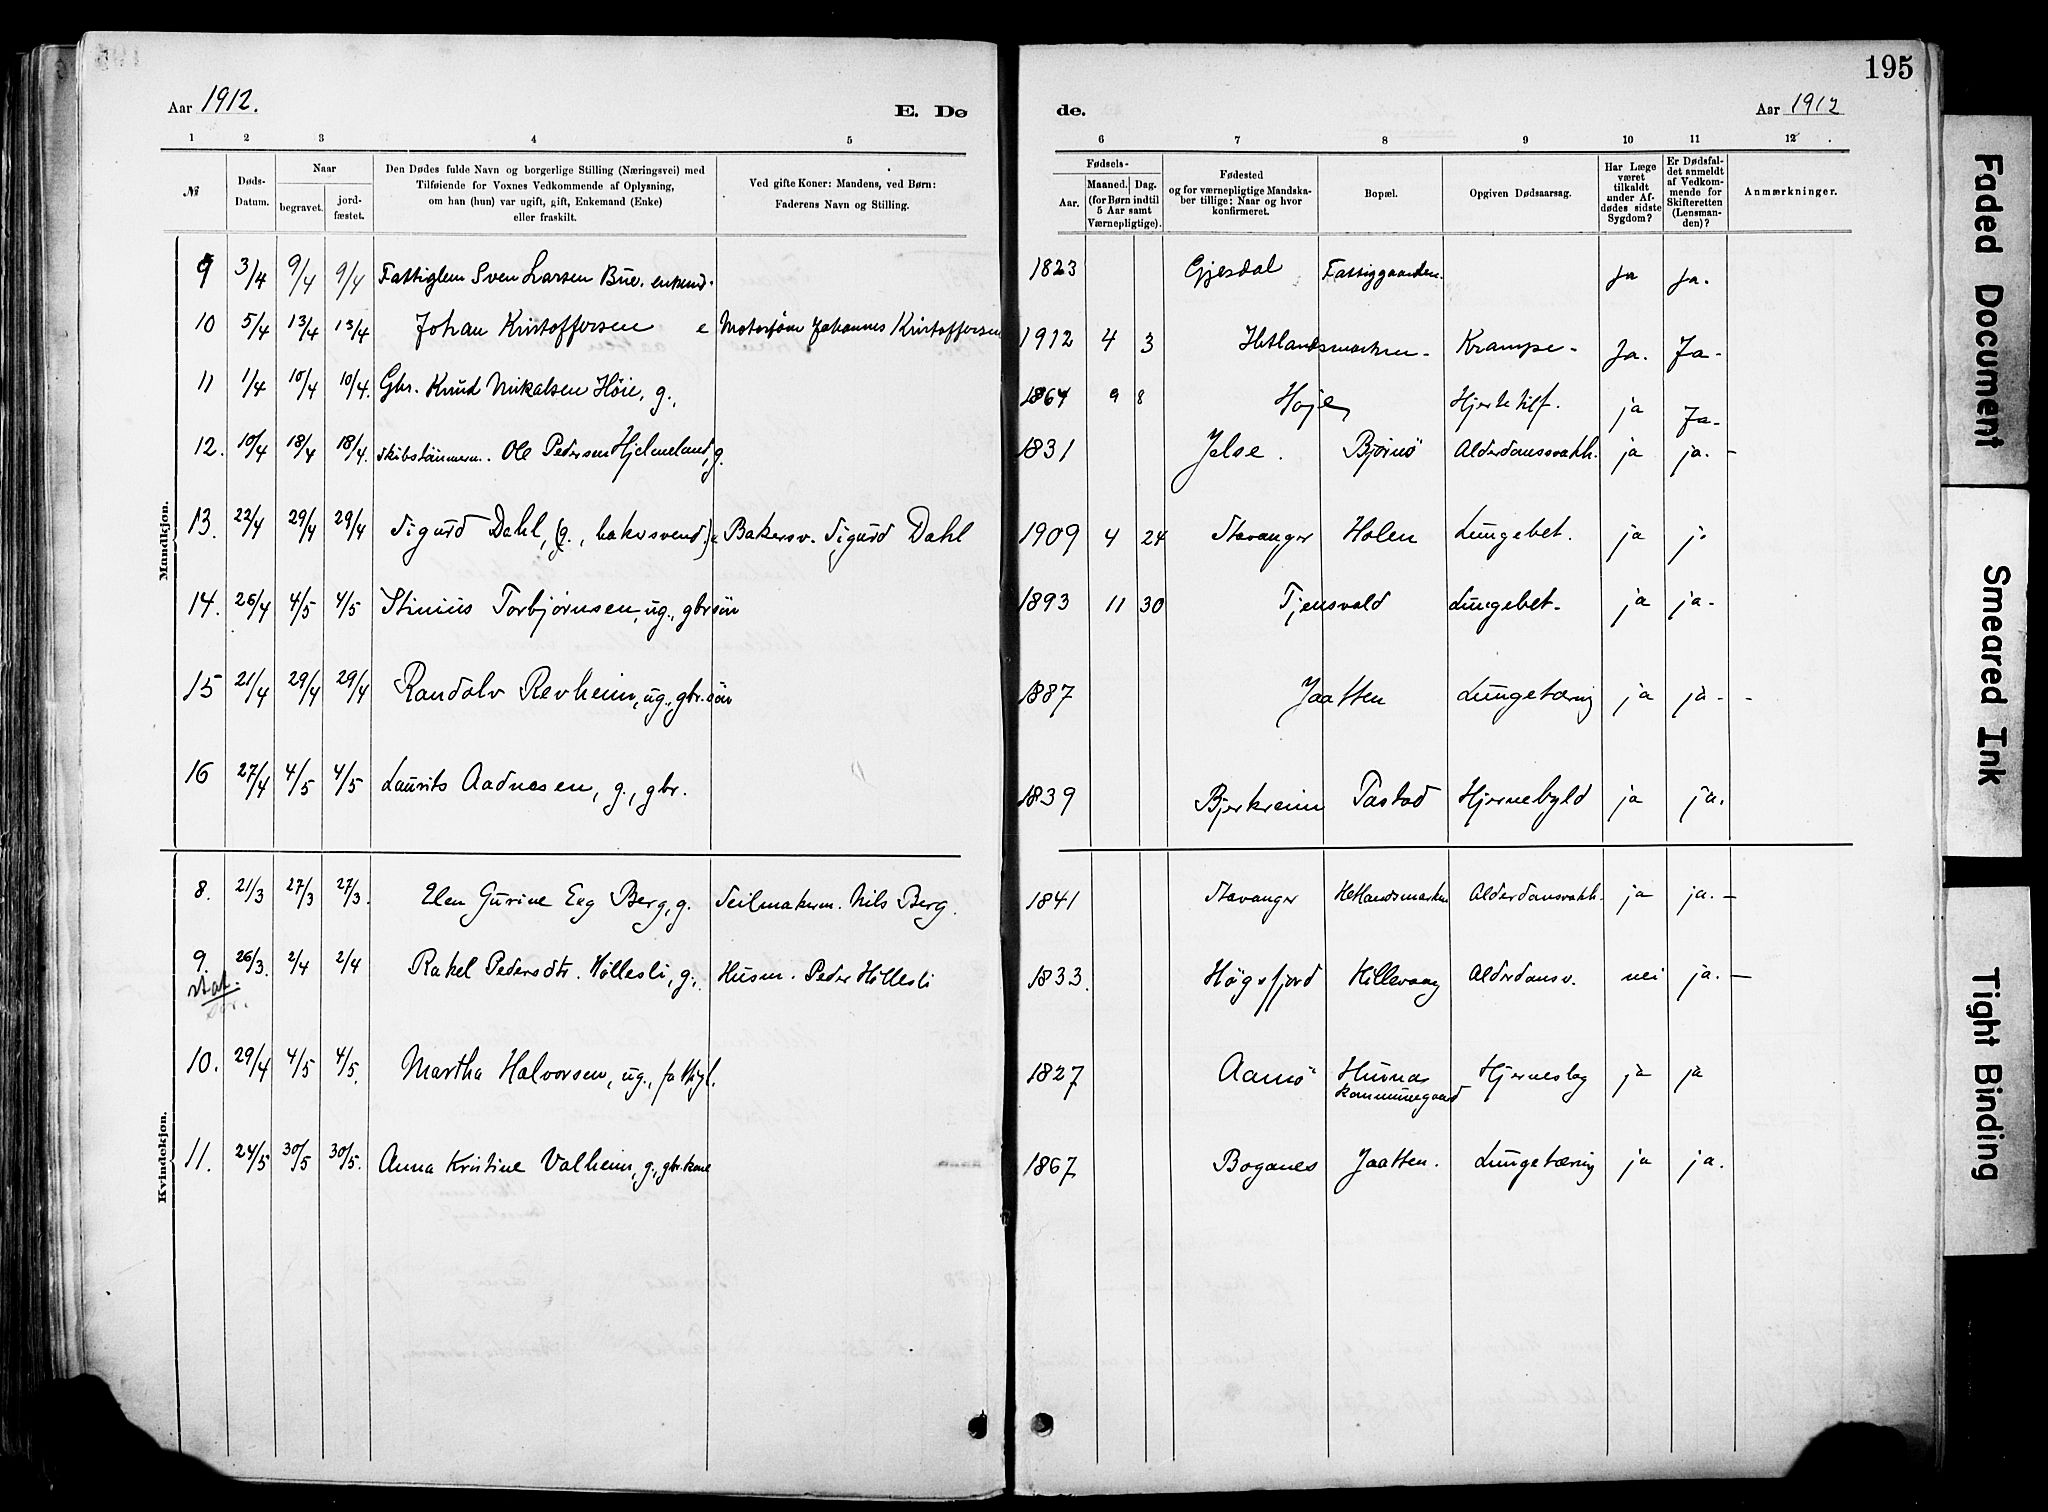 195
Aar 1912.
E. Dø
de.
Aar 1912
1 2 3 4 5
6 7 8 9 10 11 12
№
Døds-
Datum.
Naar
begravet.
jord-
fæstet.
Den Dødes fulde Navn og borgerlige Stilling (Næringsvei) med
Tilføiende for Voxnes Vedkommende af Oplysning,
om han (hun) var ugift, gift, Enkemand (Enke)
eller fraskilt.
Ved gifte Koner: Mandens, ved Børn:
Faderens Navn og Stilling.
Fødsels-
Aar.
Maaned. Dag.
(for Børn indtil
5 Aar samt
Værnepligtige).
Fødested
og for værnepligtige Mandska-
ber tillige: Naar og hvor
konfirmeret.
Bopæl.
Opgiven Dødsaarsag.
Har Læge
været
tilkaldt
under Af-
dødes sidste
Sygdom?
Er Dødsfal-
det anmeldt
af Vedkom-
mende for
Skifteretten
(Lensman-
den)?
Anmærkninger.
Mandkjøn.
9 3/4 9/4 9/4 Fattiglem Sven Larsen Bue. enkem. 1823 Gjesdal Fattiggaarden. Ja Ja.
10 5/4 13/4 13/4 Johan Kristoffersen e Motorfører Johannes Kristoffersen 1912 4 3 Hetlandsmarken - Krampe - Ja. Ja -
11 1/4 10/4 10/4. Gbr. Knud Mikalsen Høie, g., 1864 9 8 Høje Hjertetilf. ja Ja -
12. 10/4 18/4 18/4. skibstømmerm. Ole Pedersen Hjelmeland, g. 1831 Jelse. Bjørnö Alderdomssvakh. ja ja. -
13. 22/4 29/4 29/4 Sigurd Dahl, (g., bakersvend) e Bakersv. Sigurd Dahl 1909 4 24 Stavanger Holen Lungebet. ja j.
14. 26/4 4/5 4/5 Stinius Torbjørnsen, ug., gbr.sön 1893 11 30 Tjensvold Lungebet. ja ja -
15 21/4 29/4 29/4 Randolv Revheim, ug., gbr.sön 1887 Jaatten Lungetæring ja ja - -
16 27/4 4/5 4/5 Laurits Aadnesen, g., gbr. 1839 Bjerkreim Tastad Hjernebyld ja ja.
Kvindekjøn.
8. 21/3 27/3 27/3. Elen Gurine Eeg Berg, g. Seilmakerm. Nils Berg. 1841 Stavanger Hetlandsmarken Alderdomsvakh. ja ja. -
9. 26/3. 2/4 2/4 Rakel Pedersdtr. Höllesli, g., Husm. Peder Höllesli 1833. Högsfjord Hillevaag Alderdomsv. nei ja. -
10. 29/4 4/5 4/5. Martha Halvorsen, ug., fattigl. 1827 Aamö Hunnas Hjerneslag ja ja
kommunegaard
11. 24/5 30/5 30/5. Anna Kristine Valheim, g., gbr.kone 1867 Boganes Jaatten. Lungetæring ja ja.
Faded Document
Smeared Ink
Tight Binding